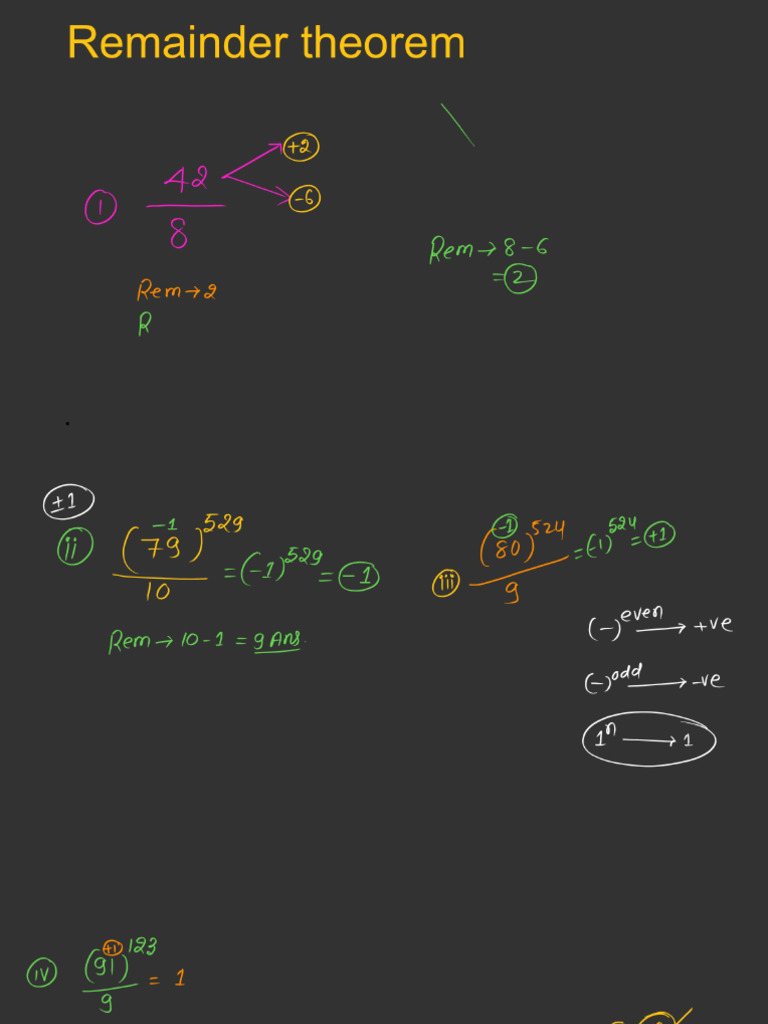 Remainder theorem
① 42/8 → +2
→ -6
Rem → 2
R
Rem → 8-6
= 2
±1
ii (79)^529/10 -1 = (-1)^529 = -1
Rem → 10-1 = 9 Ans.
iii (80)^524/9 -1 = (-1)^524 = +1
(-)^even → +ve
(-)^odd → -ve
1^n → 1
iv (91)^123/9 +1 = 1